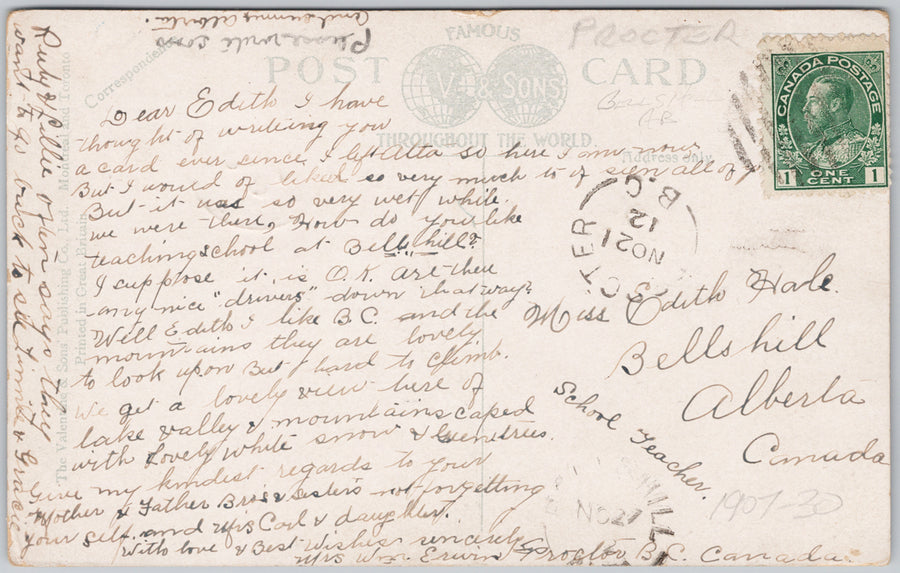 Please write soon
and sunny Alberta.
PROCTER
FAMOUS
POST CARD
V. & SONS
THROUGHOUT THE WORLD.
Correspondence
Address only
CANADA POSTAGE
1 ONE CENT 1
Dear Edith I have
thought of writing you
a card ever since I left Alta so here I am now
But I would of liked so very much to of seen all of
But it was so very wet while
we were there, How do you like
teaching school at Bellshill?
I suppose it is O.K. are there
any nice "drivers" down that way?
Well Edith I like B.C. and the
mountains they are lovely
to look upon But hard to climb.
We get a lovely view here of
lake & valley & mountains caped
with lovely white snow & Evergreen trees.
Give my kindest regards to your
Mother & Father Bros & Sisters not forgetting
your self. and Mrs Coyl & daughter.
With love & Best Wishes sincerely
Mrs Wm. Erwin Proctor B.C. Canada
Ruby & Lillie often says they
want to go back to see Jimmie & Gracie
The Valentine & Sons' Publishing Co., Ltd., Montreal and Toronto
Printed in Great Britain.
CTER
NO 21
12
B.C.
Miss Edith Hale.
Bellshill
Alberta
Canada
School Teacher.
HILL
NO 27
1907-30